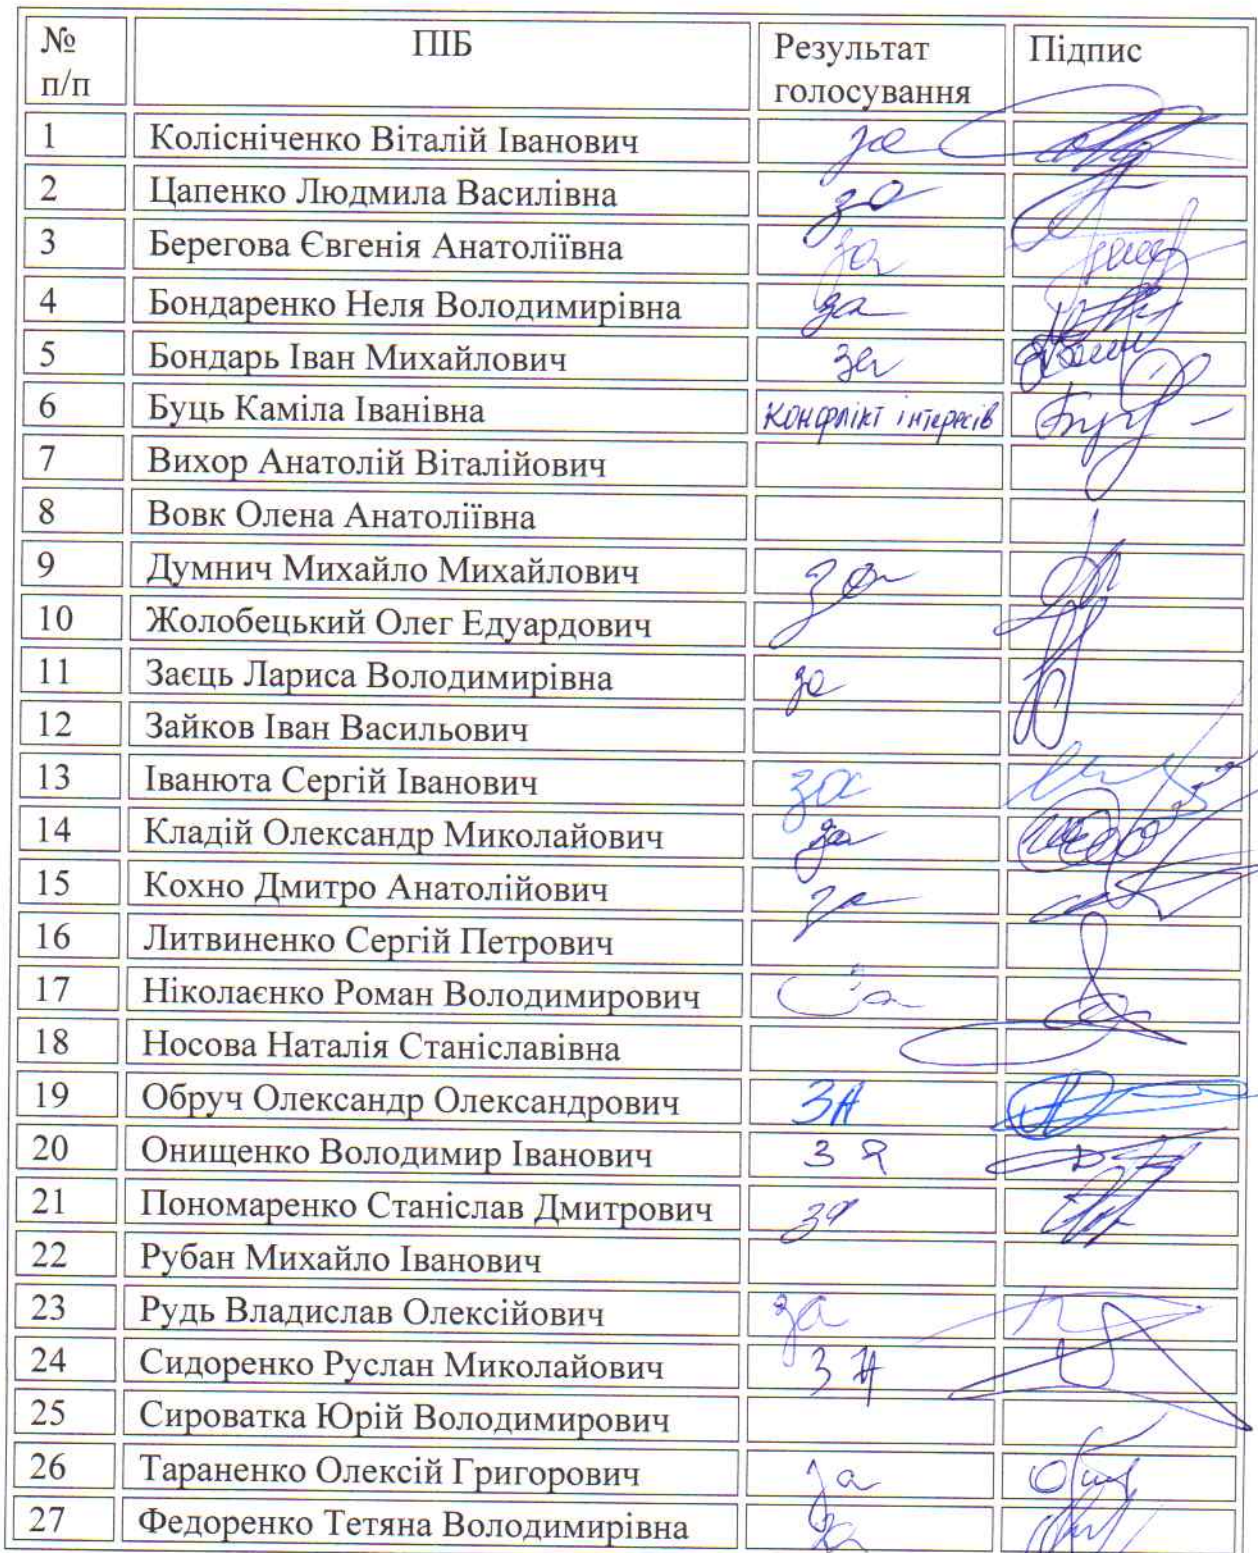 № п/п ПІБ Результат голосування Підпис
1 Колісніченко Віталій Іванович за
2 Цапенко Людмила Василівна за
3 Берегова Євгенія Анатоліївна за
4 Бондаренко Неля Володимирівна за
5 Бондарь Іван Михайлович за
6 Буць Каміла Іванівна Конфлікт інтересів
7 Вихор Анатолій Віталійович
8 Вовк Олена Анатоліївна
9 Думнич Михайло Михайлович за
10 Жолобецький Олег Едуардович
11 Заєць Лариса Володимирівна за
12 Зайков Іван Васильович
13 Іванюта Сергій Іванович за
14 Кладій Олександр Миколайович за
15 Кохно Дмитро Анатолійович за
16 Литвиненко Сергій Петрович
17 Ніколаєнко Роман Володимирович за
18 Носова Наталія Станіславівна
19 Обруч Олександр Олександрович ЗА
20 Онищенко Володимир Іванович ЗА
21 Пономаренко Станіслав Дмитрович за
22 Рубан Михайло Іванович
23 Рудь Владислав Олексійович за
24 Сидоренко Руслан Миколайович ЗА
25 Сироватка Юрій Володимирович
26 Тараненко Олексій Григорович за
27 Федоренко Тетяна Володимирівна за